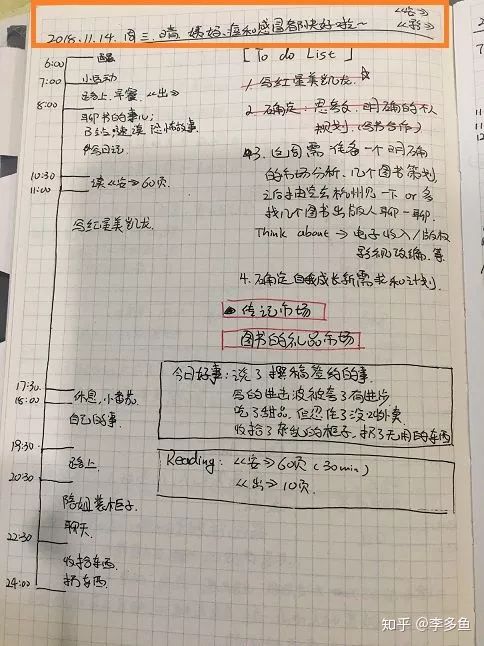 《客》
2018.11.14. 周三 晴 姨妈、痘和感冒都快好啦~ 《彩》
6:00 [To do List]
7:00 小运动 1. 写红星美凯龙.
路上.早餐.《出》
8:00 2. 确定: 思考 明确的个人
聊书的事儿; 规划 (写书合作)
恐怖故事. 3. 这周需准备一个明确
写日记. 的市场分析. 几个图书策划
10:30 找几个图书出版人聊一聊.
11:00 读《客》60页. Think about → 电子收入/版权
写红星美凯龙 影视改编.等
4. 确定自我成长新需求和计划.
传记市场
图书的礼品市场
今日好事: 说了撰稿签约的事.
17:30 写的曲线被夸了有进步
18:00 休息,小番茄 吃了甜品,但忍住了没叫外卖
自己的事. 收拾了杂乱的柜子,扔了无用的东西
19:30
路上 Reading: 《客》60页 (30min)
20:30 《出》10页.
陪姐装柜子.
聊天.
22:30
收拾东西.
扔东西.
24:00
知乎 @李多鱼